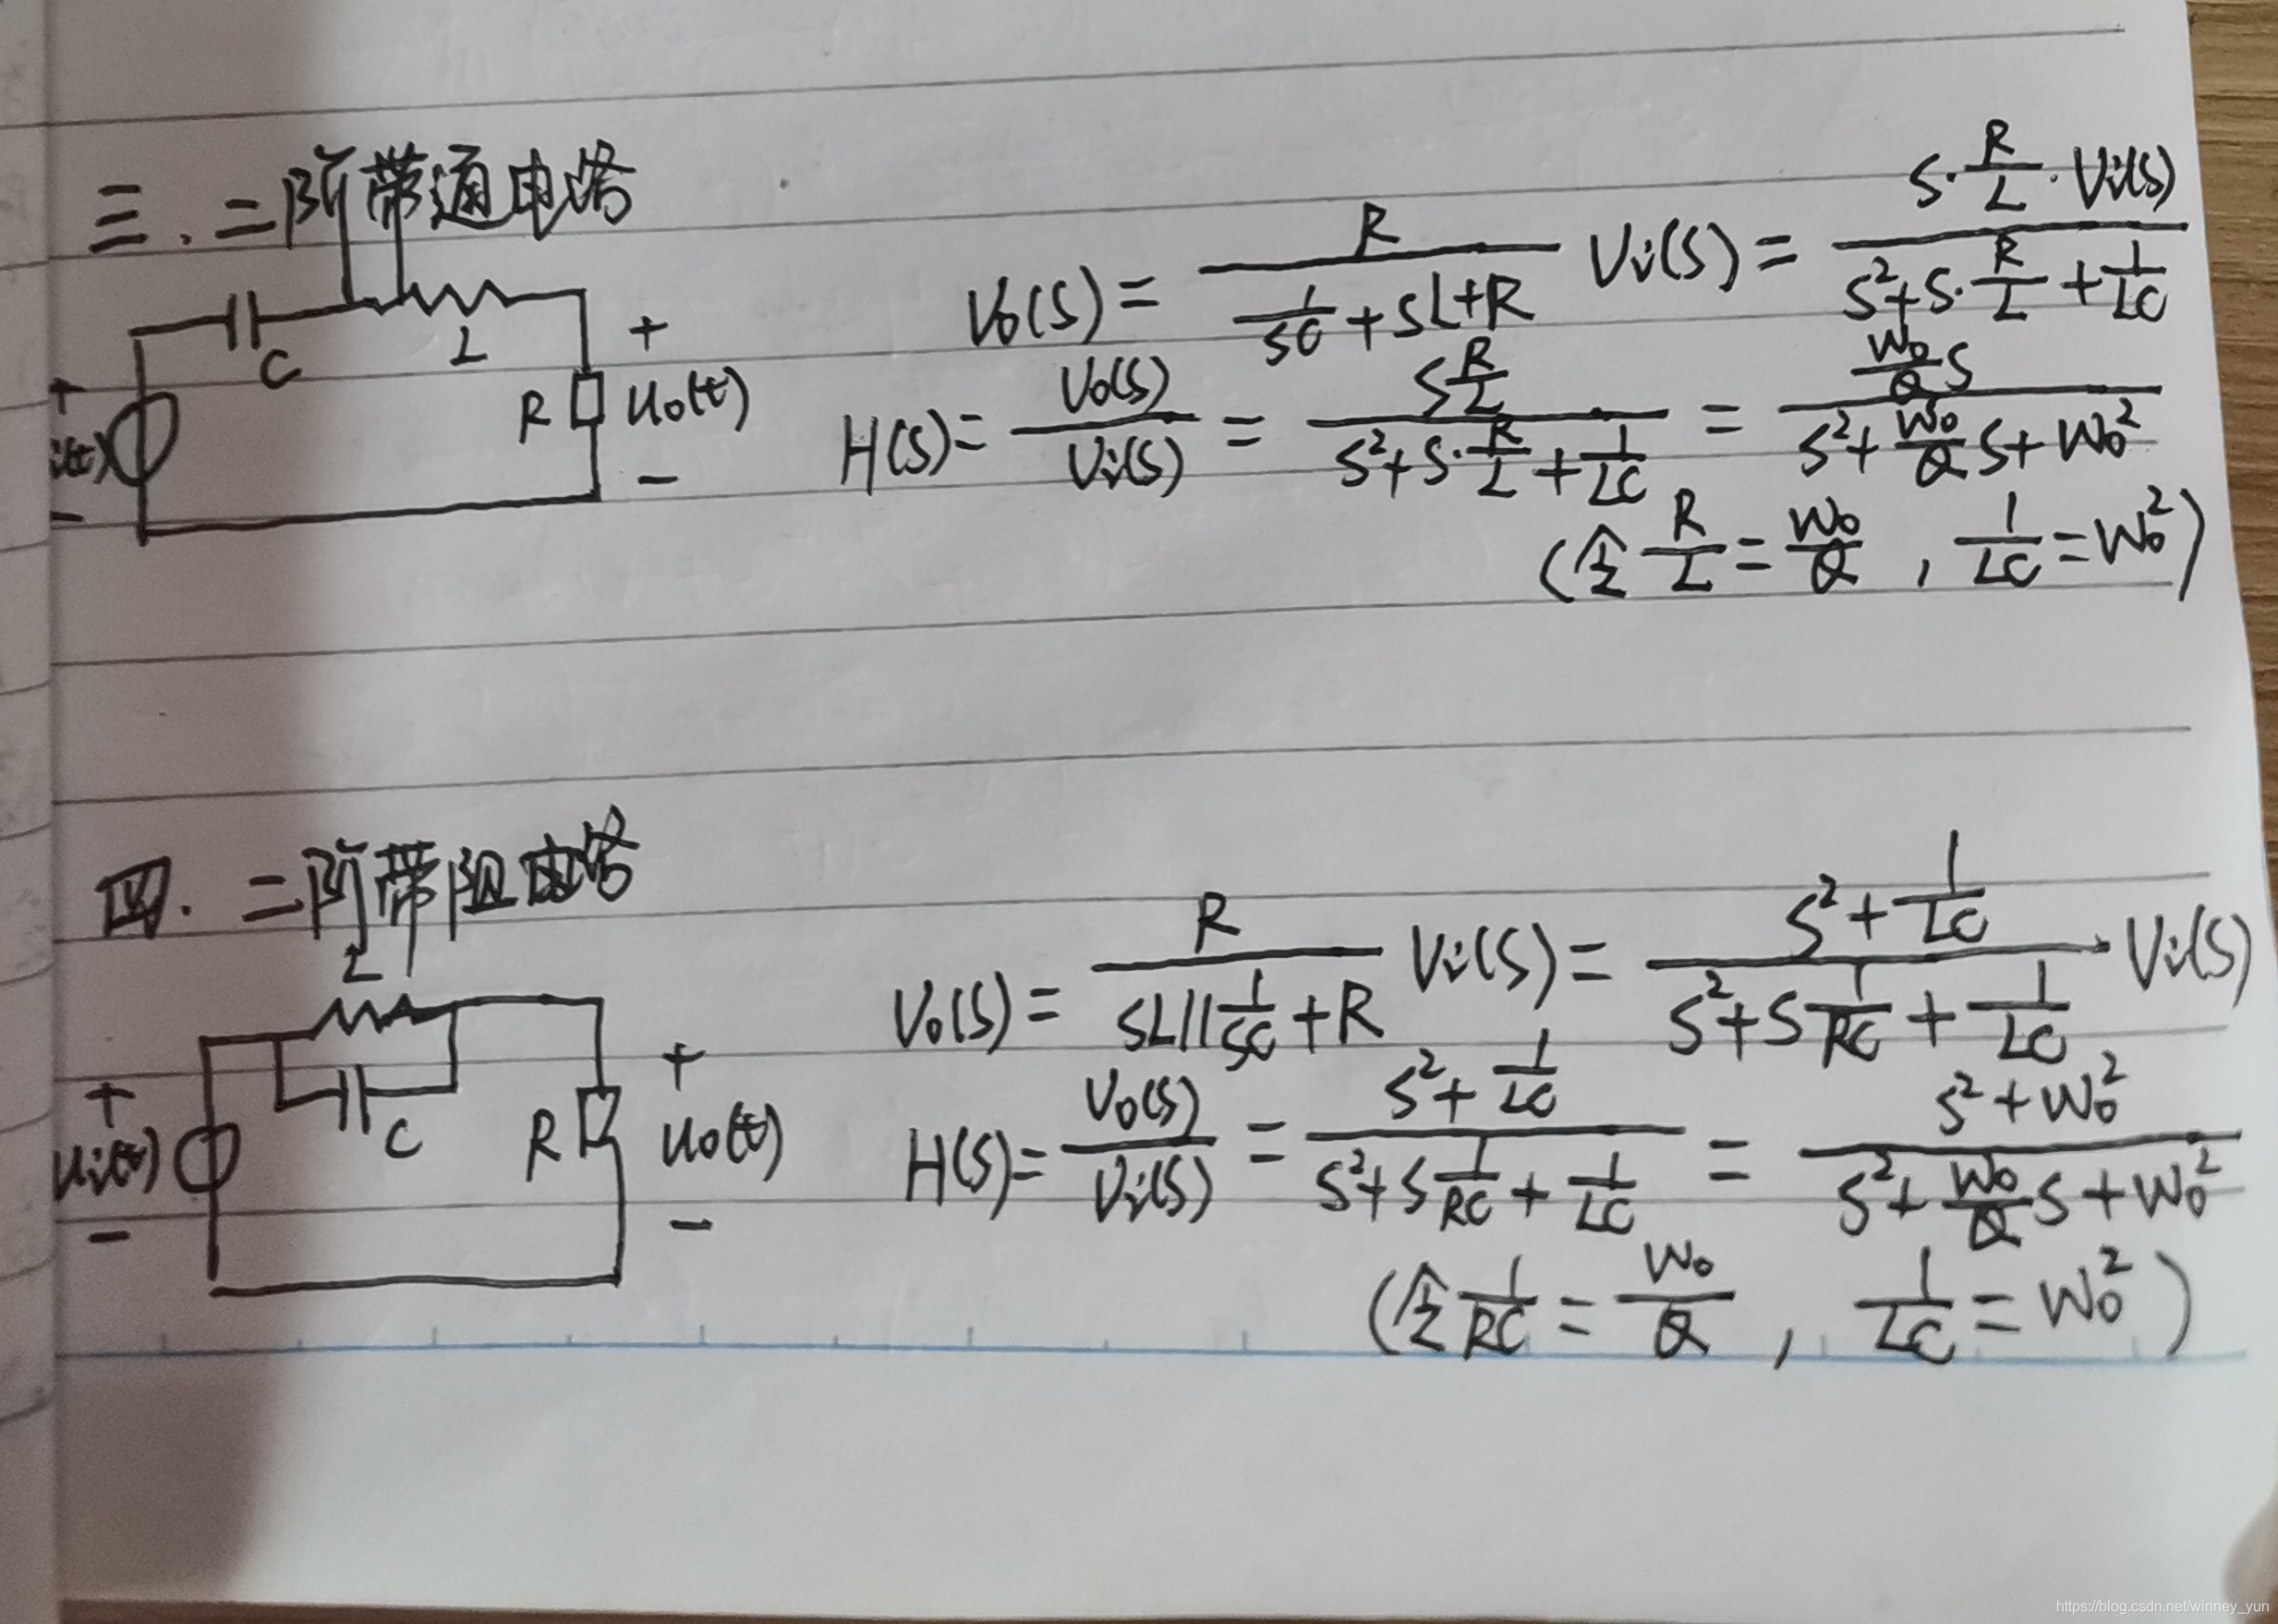 三、二阶带通电路
C
L
+
+
i(t)
R
u₀(t)
−
−
V₀(S) = R / (1/SC + SL + R) Vi(S) = S·R/L·Vi(S) / (S² + S·R/L + 1/LC)
H(S) = V₀(S) / Vi(S) = S R/L / (S² + S·R/L + 1/LC) = W₀/Q S / (S² + W₀/Q S + W₀²)
(令 R/L = W₀/Q , 1/LC = W₀²)
四、二阶带阻电路
L
C
+
+
ui(t)
R
u₀(t)
−
−
V₀(S) = R / (SL||1/SC + R) Vi(S) = (S² + 1/LC) / (S² + S 1/RC + 1/LC) · Vi(S)
H(S) = V₀(S) / Vi(S) = (S² + 1/LC) / (S² + S 1/RC + 1/LC) = (S² + W₀²) / (S² + W₀/Q S + W₀²)
(令 1/RC = W₀/Q , 1/LC = W₀²)
https://blog.csdn.net/winney_yun